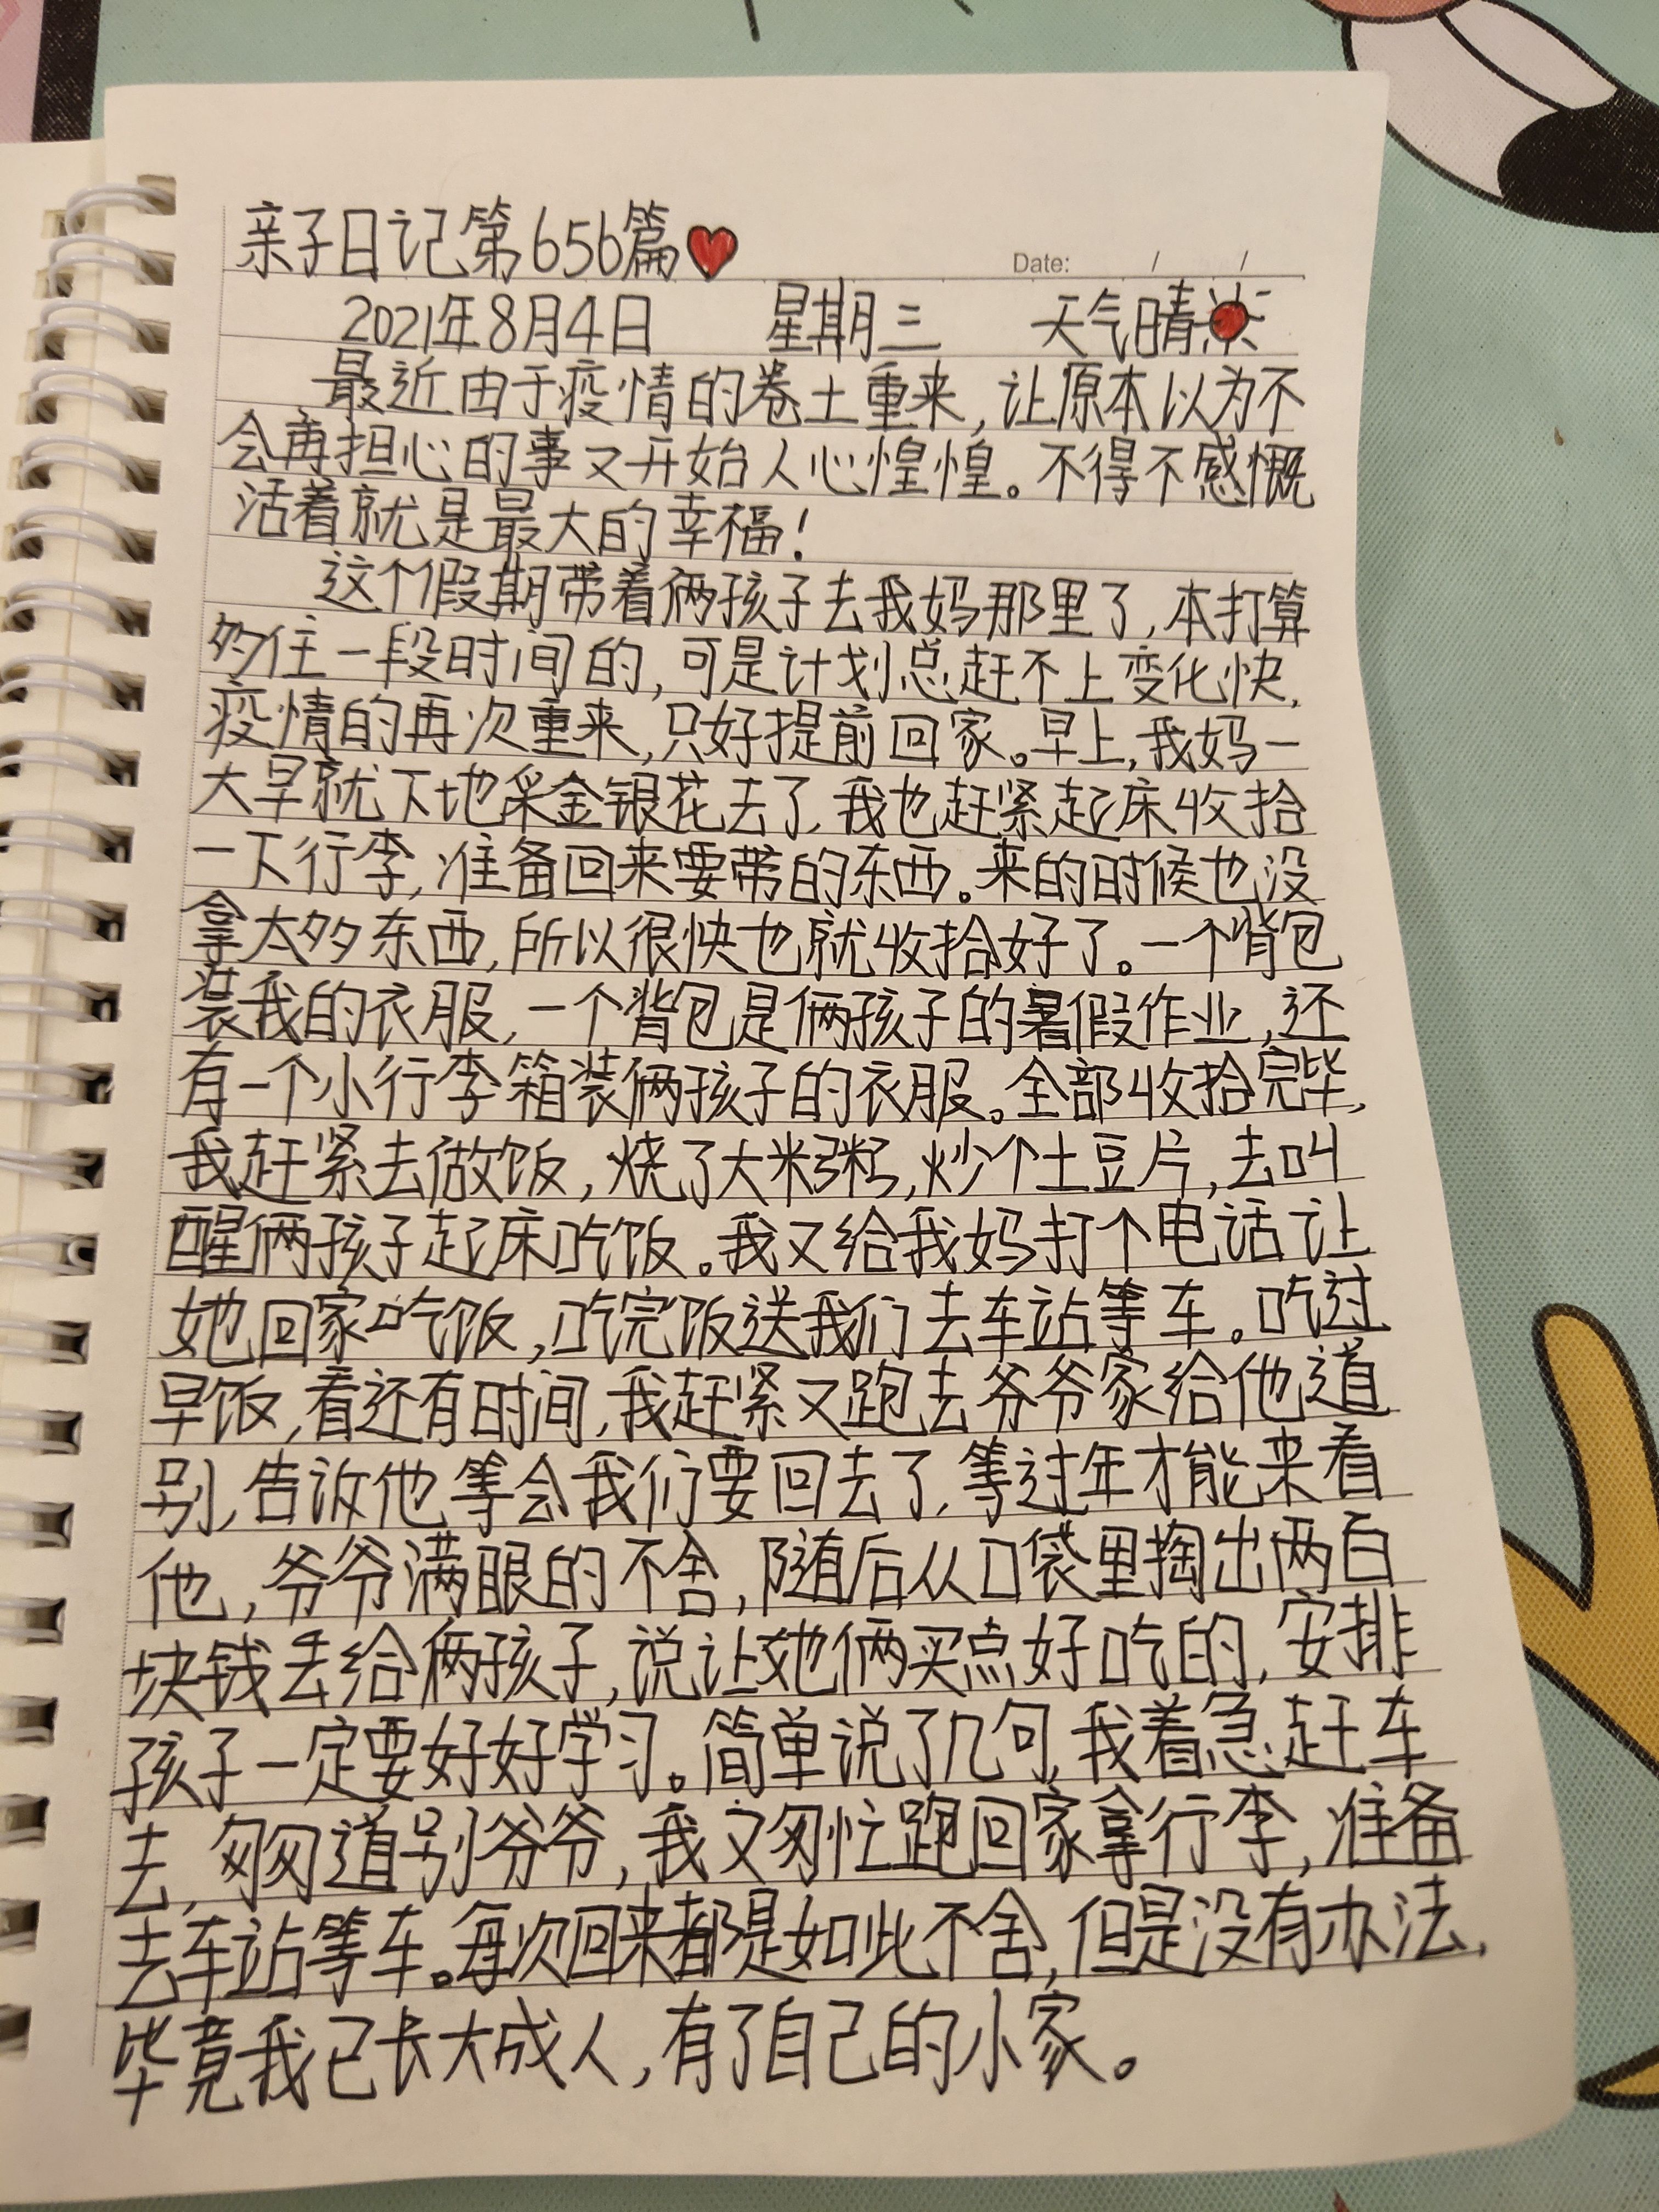 亲子日记第656篇
Date: / /
2021年8月4日 星期三 天气晴
最近由于疫情的卷土重来,让原本以为不
会再担心的事又开始人心惶惶。不得不感慨
活着就是最大的幸福!
这个假期带着俩孩子去我妈那里了,本打算
多住一段时间的,可是计划总赶不上变化快,
疫情的再次重来,只好提前回家。早上,我妈一
大早就下地采金银花去了,我也赶紧起床收拾
一下行李,准备回来要带的东西。来的时候也没
拿太多东西,所以很快也就收拾好了。一个背包
装我的衣服,一个背包是俩孩子的暑假作业,还
有一个小行李箱装俩孩子的衣服。全部收拾完毕,
我赶紧去做饭,烧了大米粥,炒个土豆片,去叫
醒俩孩子起床吃饭。我又给我妈打个电话让
她回家吃饭,吃完饭送我们去车站等车。吃过
早饭,看还有时间,我赶紧又跑去爷爷家给他道
别,告诉他等会我们要回去了,等过年才能来看
他,爷爷满眼的不舍,随后从口袋里掏出两百
块钱丢给俩孩子,说让她俩买点好吃的,安排
孩子一定要好好学习。简单说了几句,我着急赶车
去,匆匆道别爷爷,我又匆忙跑回家拿行李,准备
去车站等车。每次回来都是如此不舍,但是没有办法,
毕竟我已长大成人,有了自己的小家。